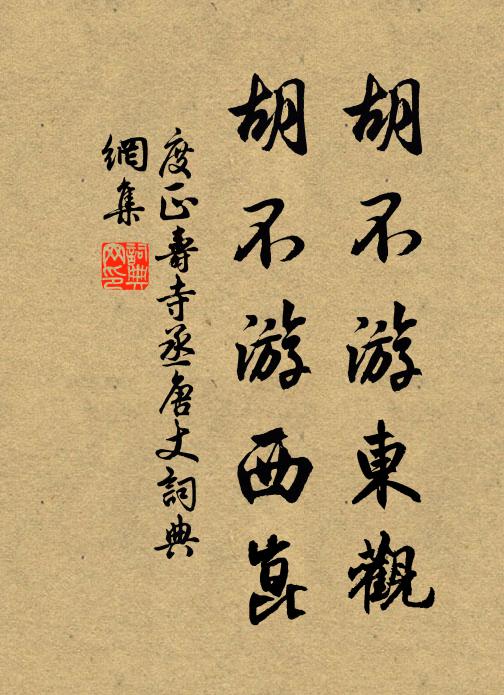 胡不游東觀
胡不游西崑
度正壽寺丞唐丈詞典
網集
詞典網印